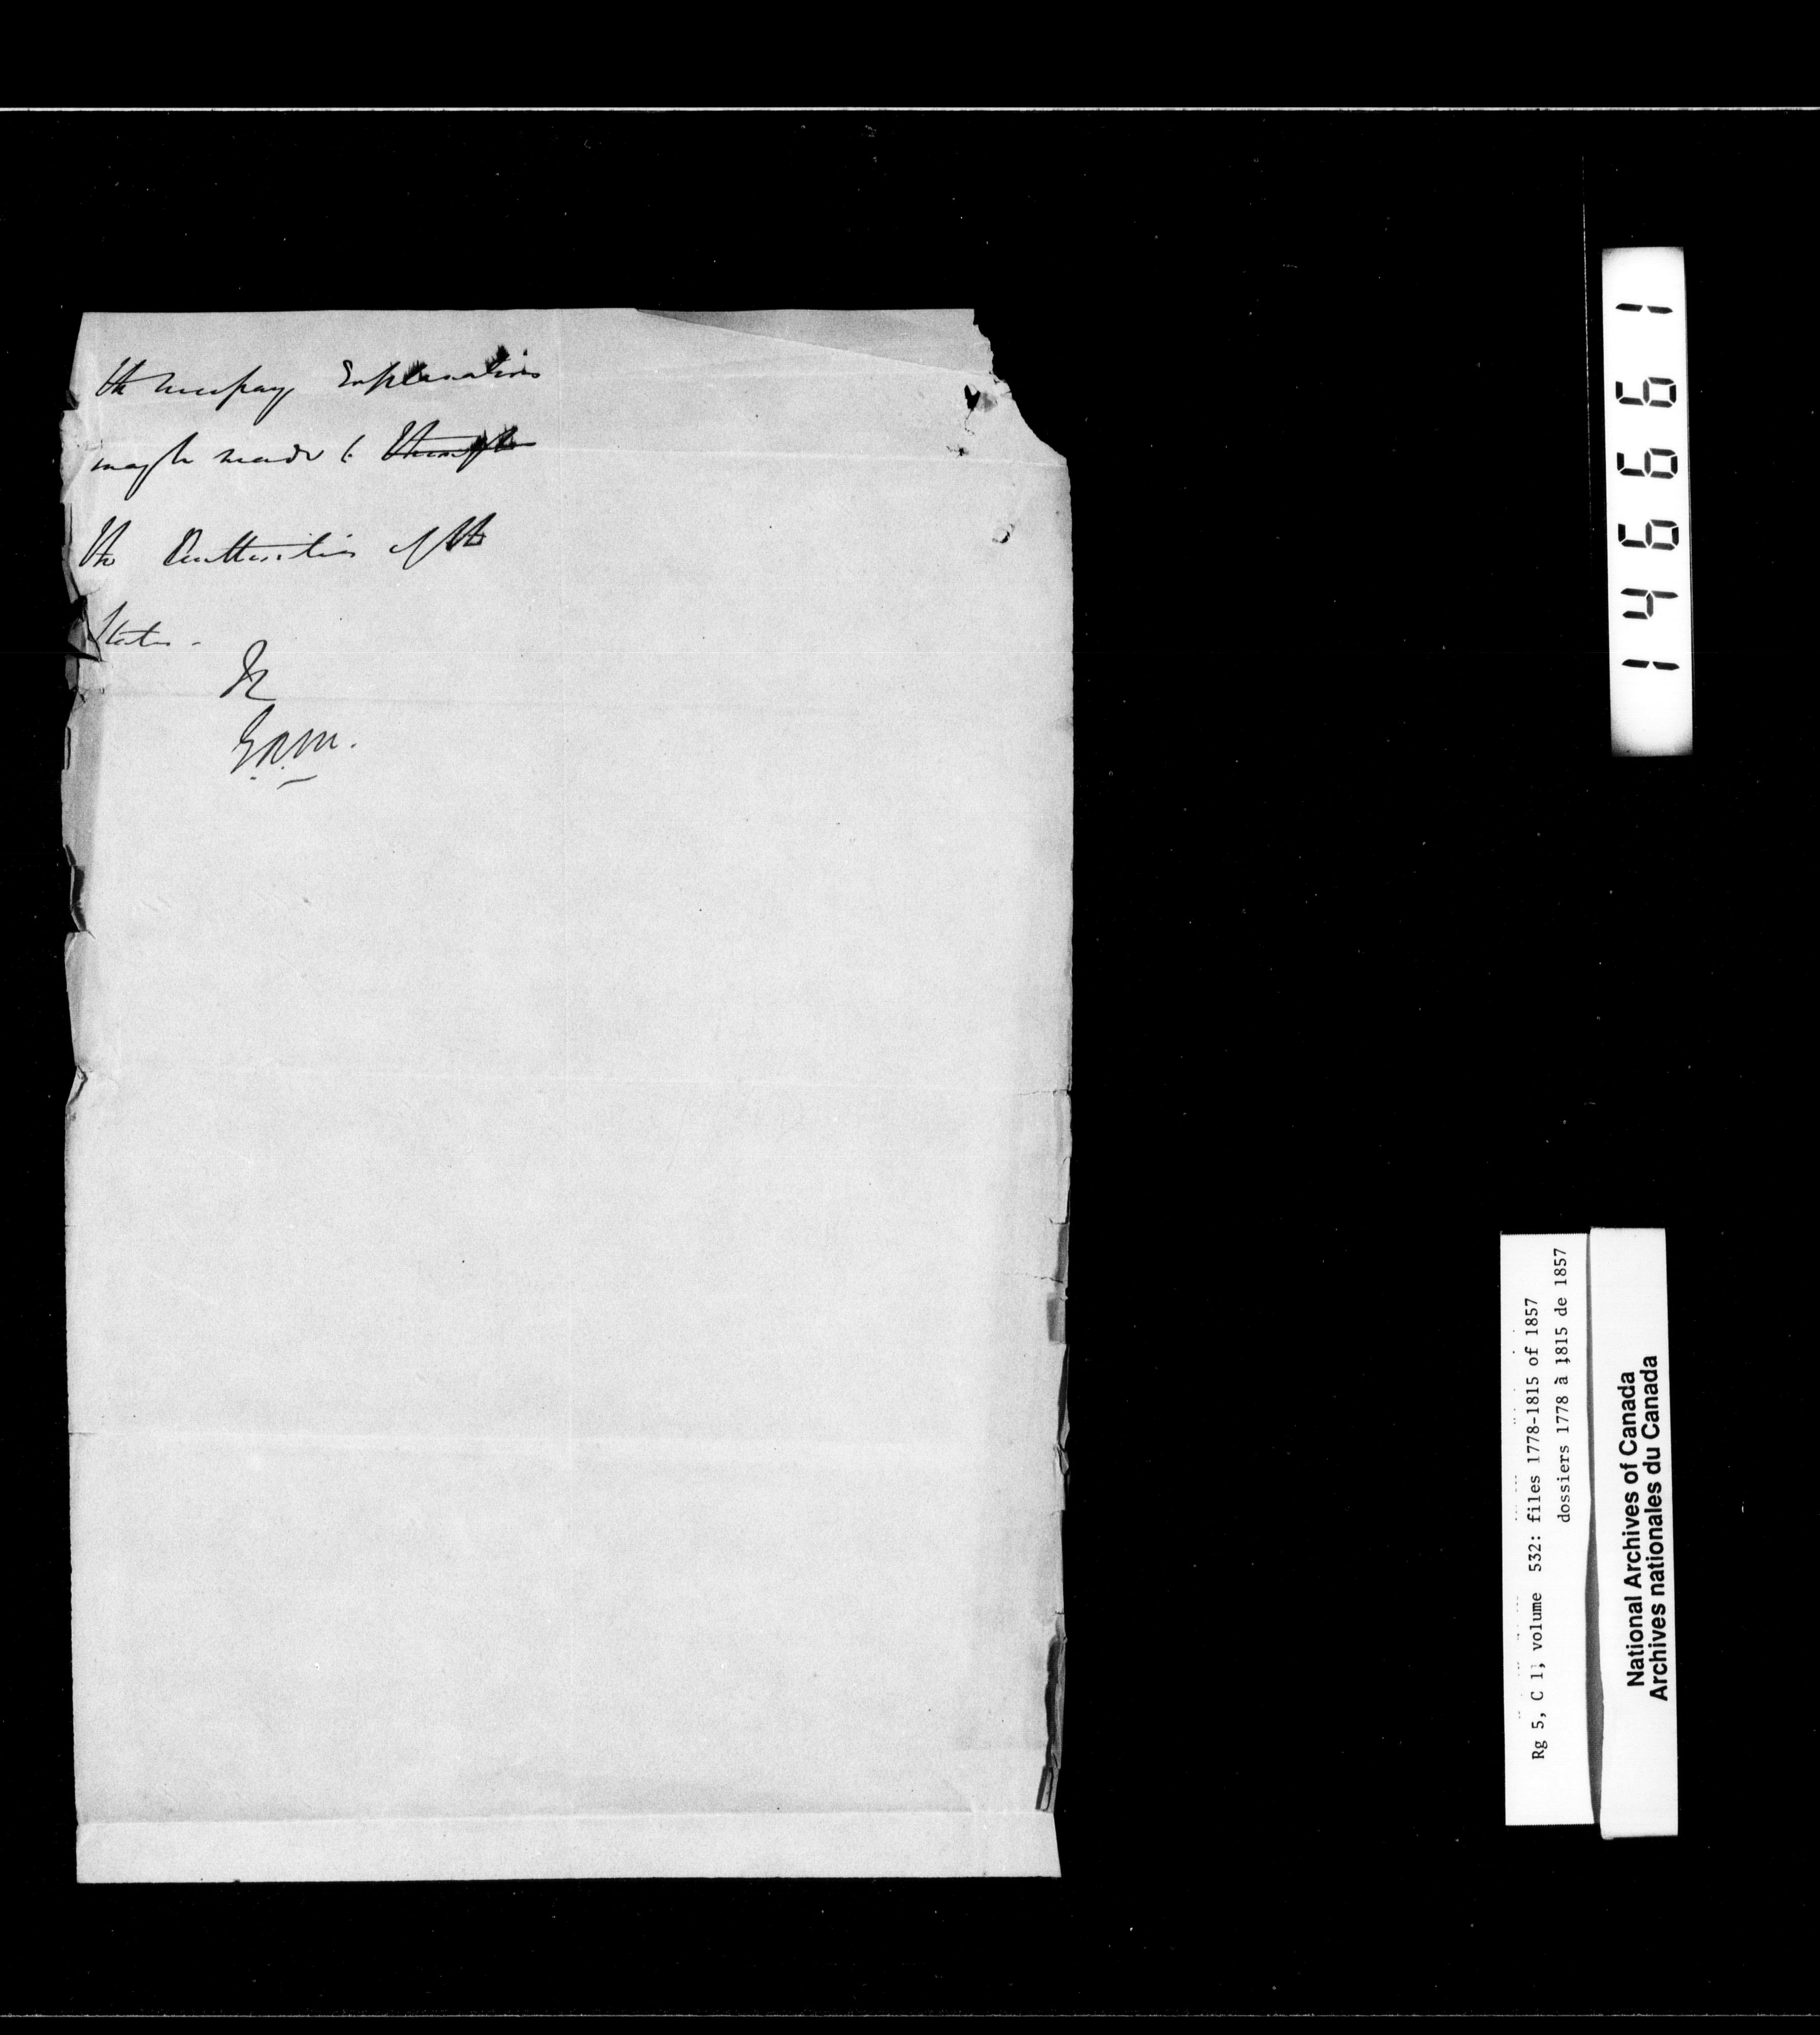 the necessary Explanations
may be made to
the Authorities of the
States -
E.A.M.
146661
Rg 5, C 1, volume 532: files 1778-1815 of 1857
dossiers 1778 à 1815 de 1857
National Archives of Canada
Archives nationales du Canada